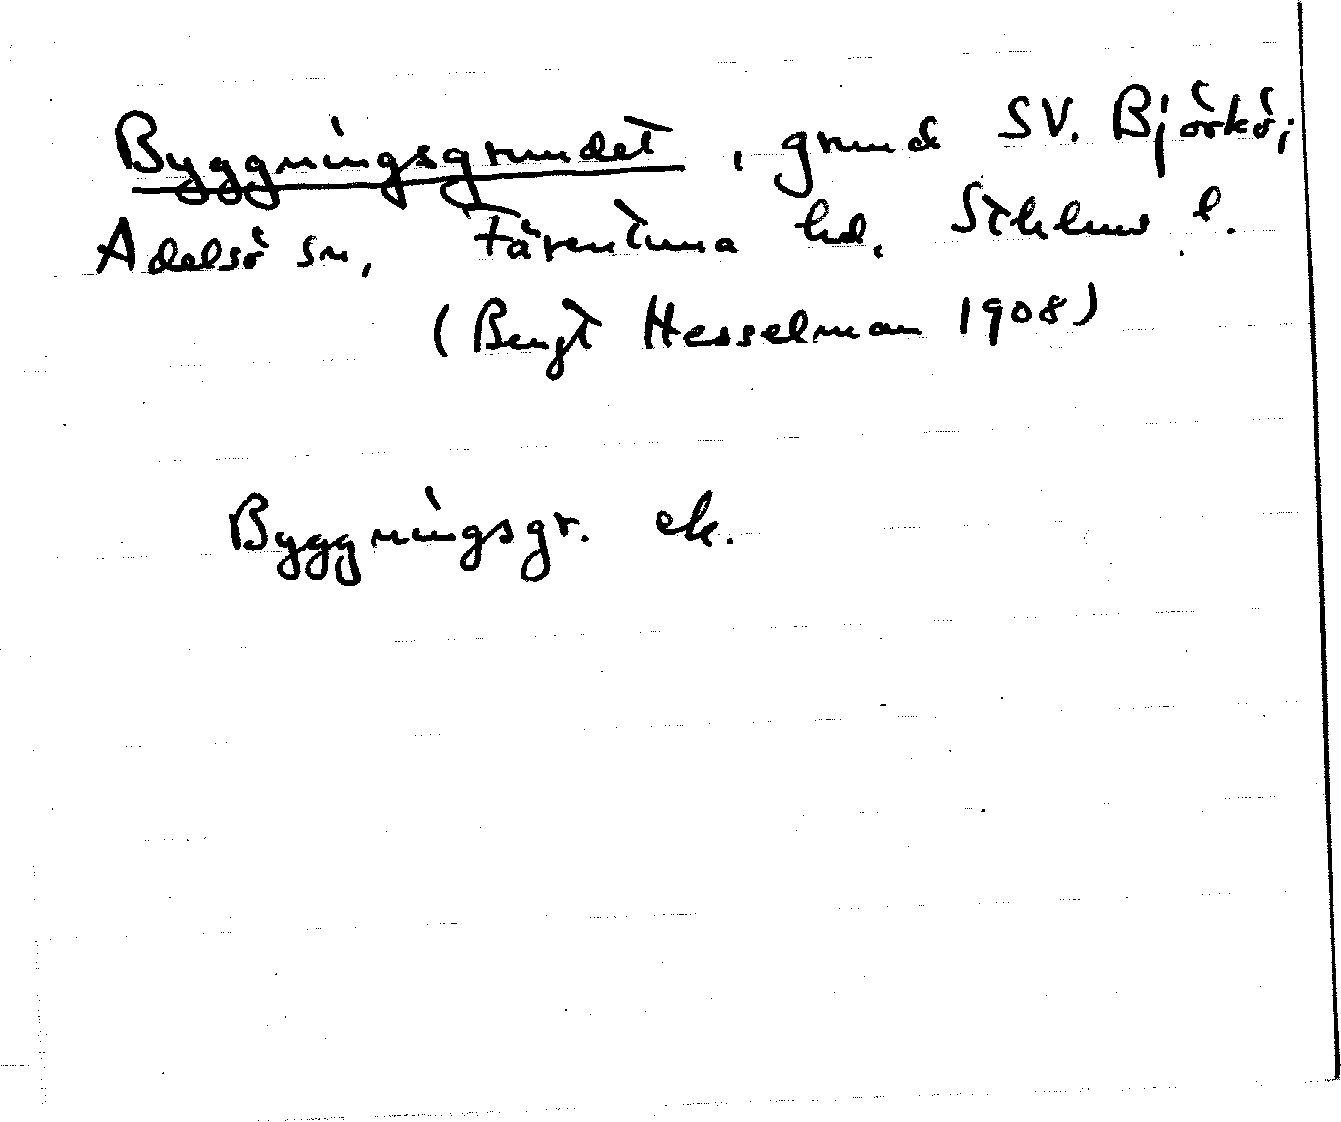 Byggningsgrundet, grund SV. Björkö,
Adelsö sn, Färentuna hd. Sthlms l.
(Bengt Hesselman 1908)
Byggningsgr. ek.